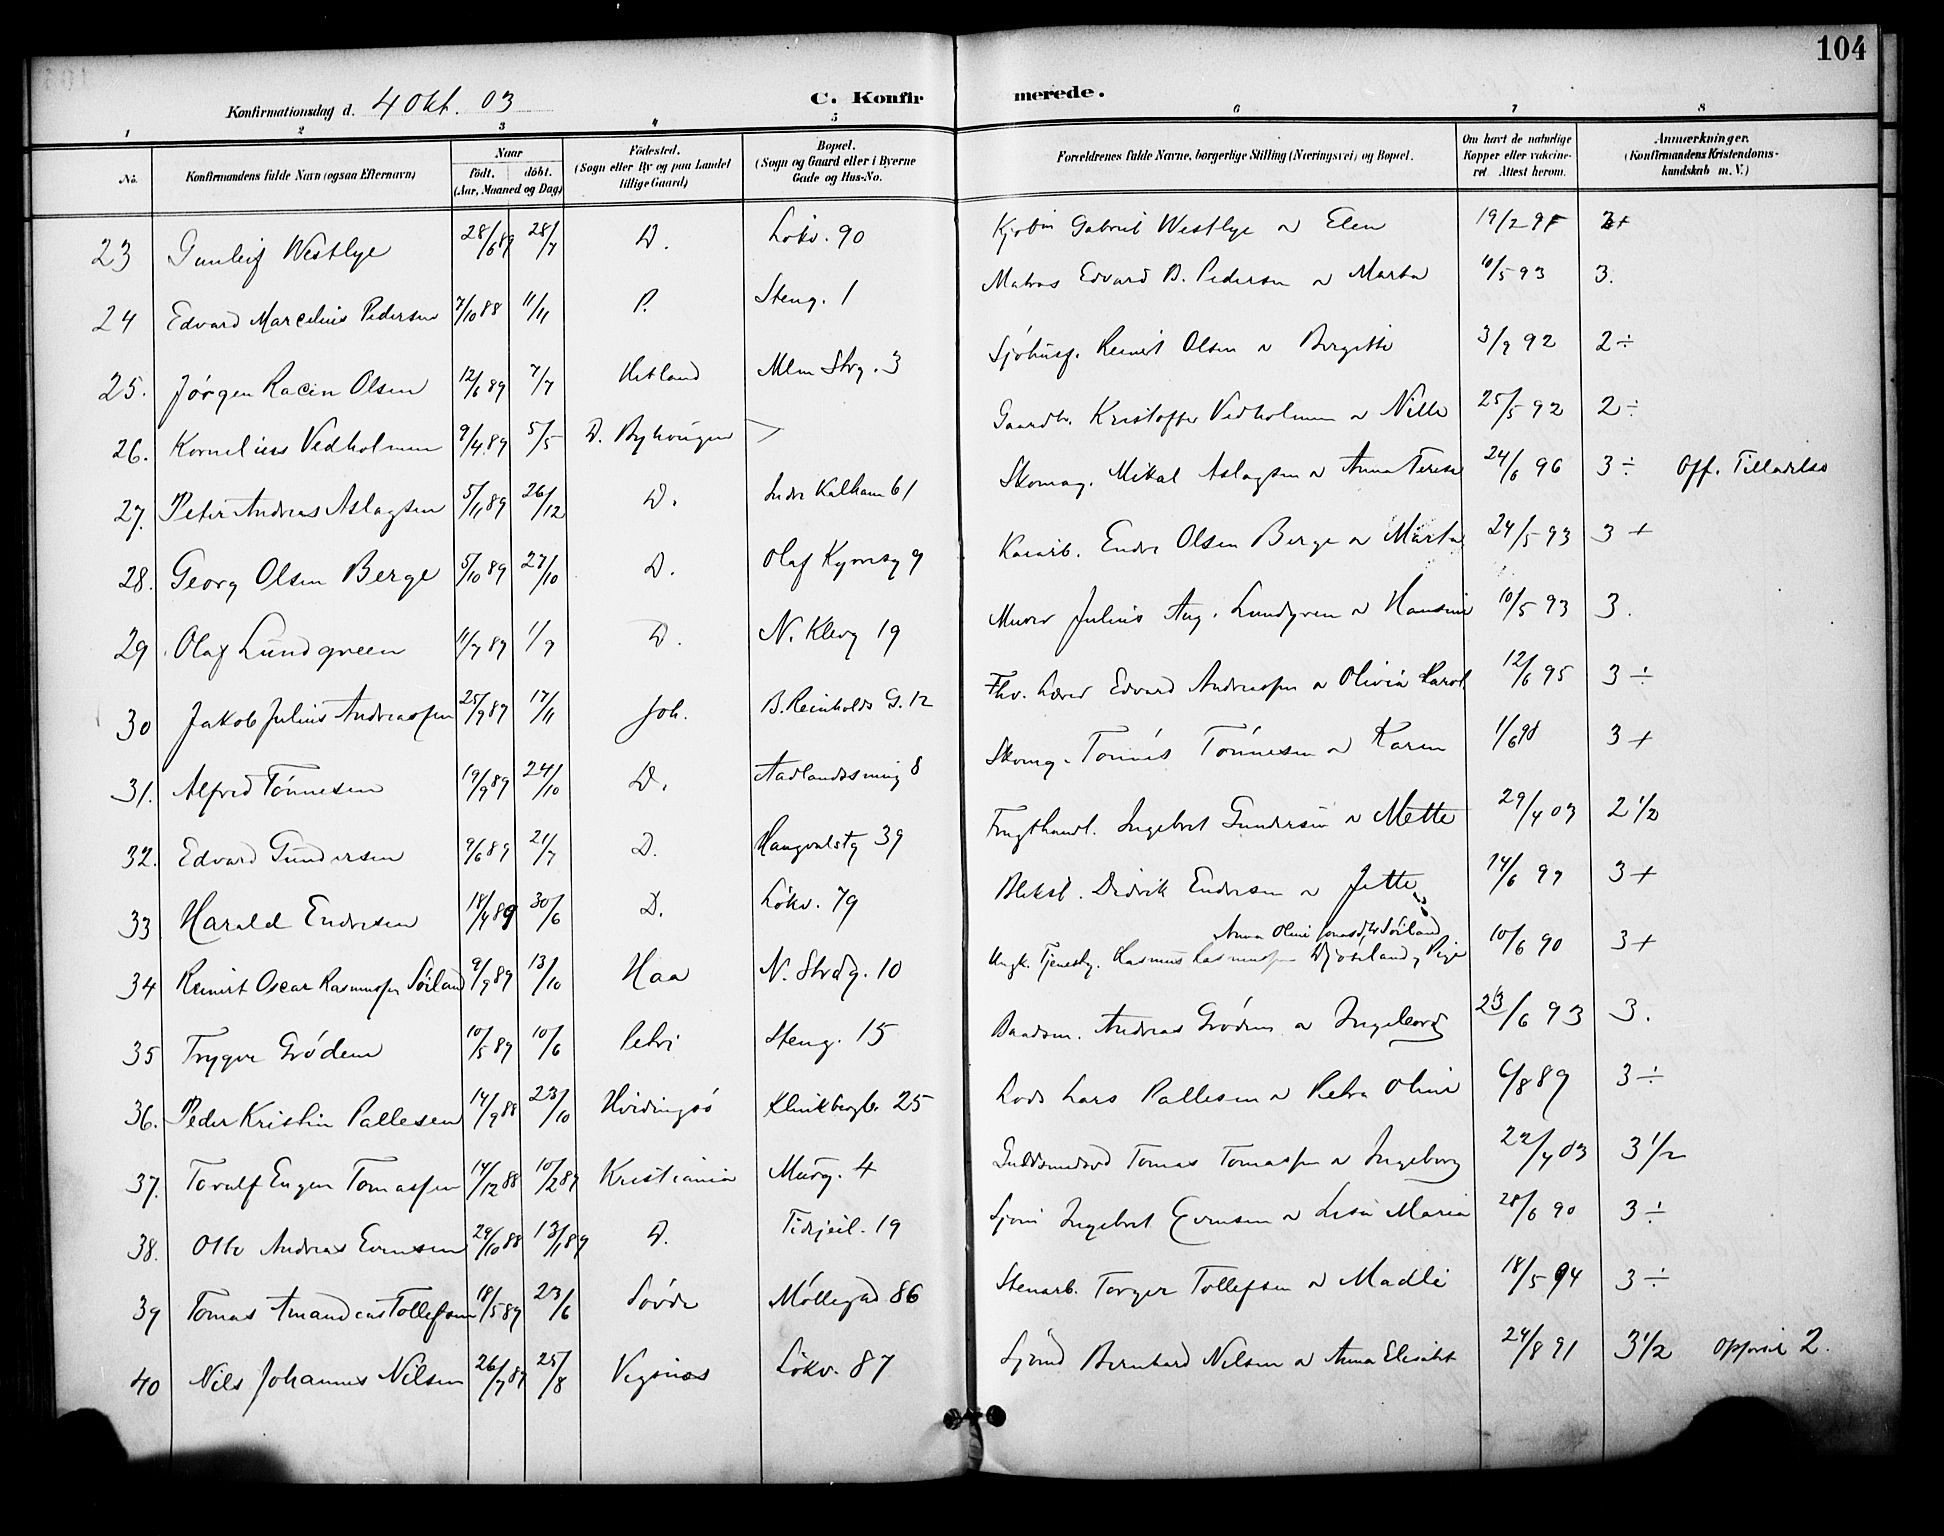 104
Konfirmationsdag d. 4 Okt. 03
C. Konfirmerede.
1 2 3 4 5 6 7 8
No. Konfirmandens fulde Navn (ogsaa Efternavn) Naar födt. döbt. (Aar, Maaned og Dag) Födested. (Sogn eller By og paa Landet tillige Gaard) Bopæl. (Sogn og Gaard eller i Byerne Gade og Hus-No. Forældrenes fulde Navne, borgerlige Stilling (Næringsvei) og Bopæl. Om havt de naturlige Kopper eller vakcineret Attest herom. Anmærkninger. (Konfirmandens Kristendomskundskab m. V.)
23 Gunleif Westlye 28/6 89 28/7 D. Lökv. 90 Gabriel Westlye o Elen 19/2 3+
24 Edvard Marcelius Pedersen 7/10 88 11/11 P. Steng. 1 Matros Edvard B. Pedersen o Marta 10/5 93 3.
25. Jørgen Racin Olsen 12/6 89 7/7 Hetland Mlm Strg. 3 Sjøhusf. Reinert Olsen o Bergitte 3/9 92 2÷
26. Kornelius Vedholmen 9/4 89 5/5 D. Byhougen Gaardb. Kristoffer Vedholmen o Nille 25/5 92 2÷
27. Peter Andreas Aslagsen 5/11 89 26/12 D. Indr Kalham 61 Skomag. Mikal Aslagsen o Anna Terese 24/6 96 3÷ Off. Tilladelse
28. Georg Olsen Berge 5/10 89 27/10 D. Olaf Kyrresg 9 Endre Olsen Berge o Marta 24/5 93 3+
29 Olaf Lundgreen 11/7 89 1/9 D. N. Klevg 19 Murer Julius Aug. Lundgreen o Hansine 10/5 93 3.
30 Jakob Julius Andreassen 25/9 89 17/11 Joh. B. Reinholds G. 12 Fhv. Lærer Edvard Andreassen o Olivia Karol. 12/6 95 3÷
31. Alfred Tönnesen 19/9 89 24/10 D. 8 Skomg. Tönnes Tönnesen o Karen 1/6 98 3+
32. Edvard Gundersen 9/6 89 21/7 D. Haugvaldstg 39 Frugthandl. Ingebret Gundersen o Mette 29/4 03 2 1/2
33 Harald Endresen 18/4 89 30/6 D. Lökv. 79 Bleksl. Didrik Endresen o Jette 14/6 97 3+
34 Reinert Oscar Rasmussen Sörland 9/9 89 13/10 Haa N. Strdg. 10 Ungk. Rasmus Rasmussen Anna Oline Jonasdtr Sörland Pige 10/6 90 3+
35 Trygve Grödem 10/5 89 10/6 Petri Steng. 15 Baadsm. Andreas Grödem o Ingeborg 23/6 93 3.
36. Peder Kristin Pallesen 14/9 88 23/10 Hvidingsö Klinkbergtr. 25 Lods Lars Pallesen o Petra Oline 6/8 89 3÷
37. Toralf Eugen Tomassen 14/12 88 10/2 89 Kristiania Murg. 4 Guldsmedsvd Tomas Tomassen o Ingeborg 22/4 03 3 1/2
38. Otto Andreas Evensen 29/10 88 13/1 89 D. 19 Sjöm Ingebret Evensen o Lisa Maria 28/6 90 3÷
39 Tomas Amandius Tollefsen 18/5 89 23/6 Sövde Möllegad 86 Stenarb. Torger Tollefsen o Madli 18/5 94 3÷
40 Nils Johannes Nilsen 26/7 89 25/8 Vigsnæs Lökv. 87 Sjömd Bernhard Nilsen o Anna Elisabet 24/8 91 3 1/2 2.